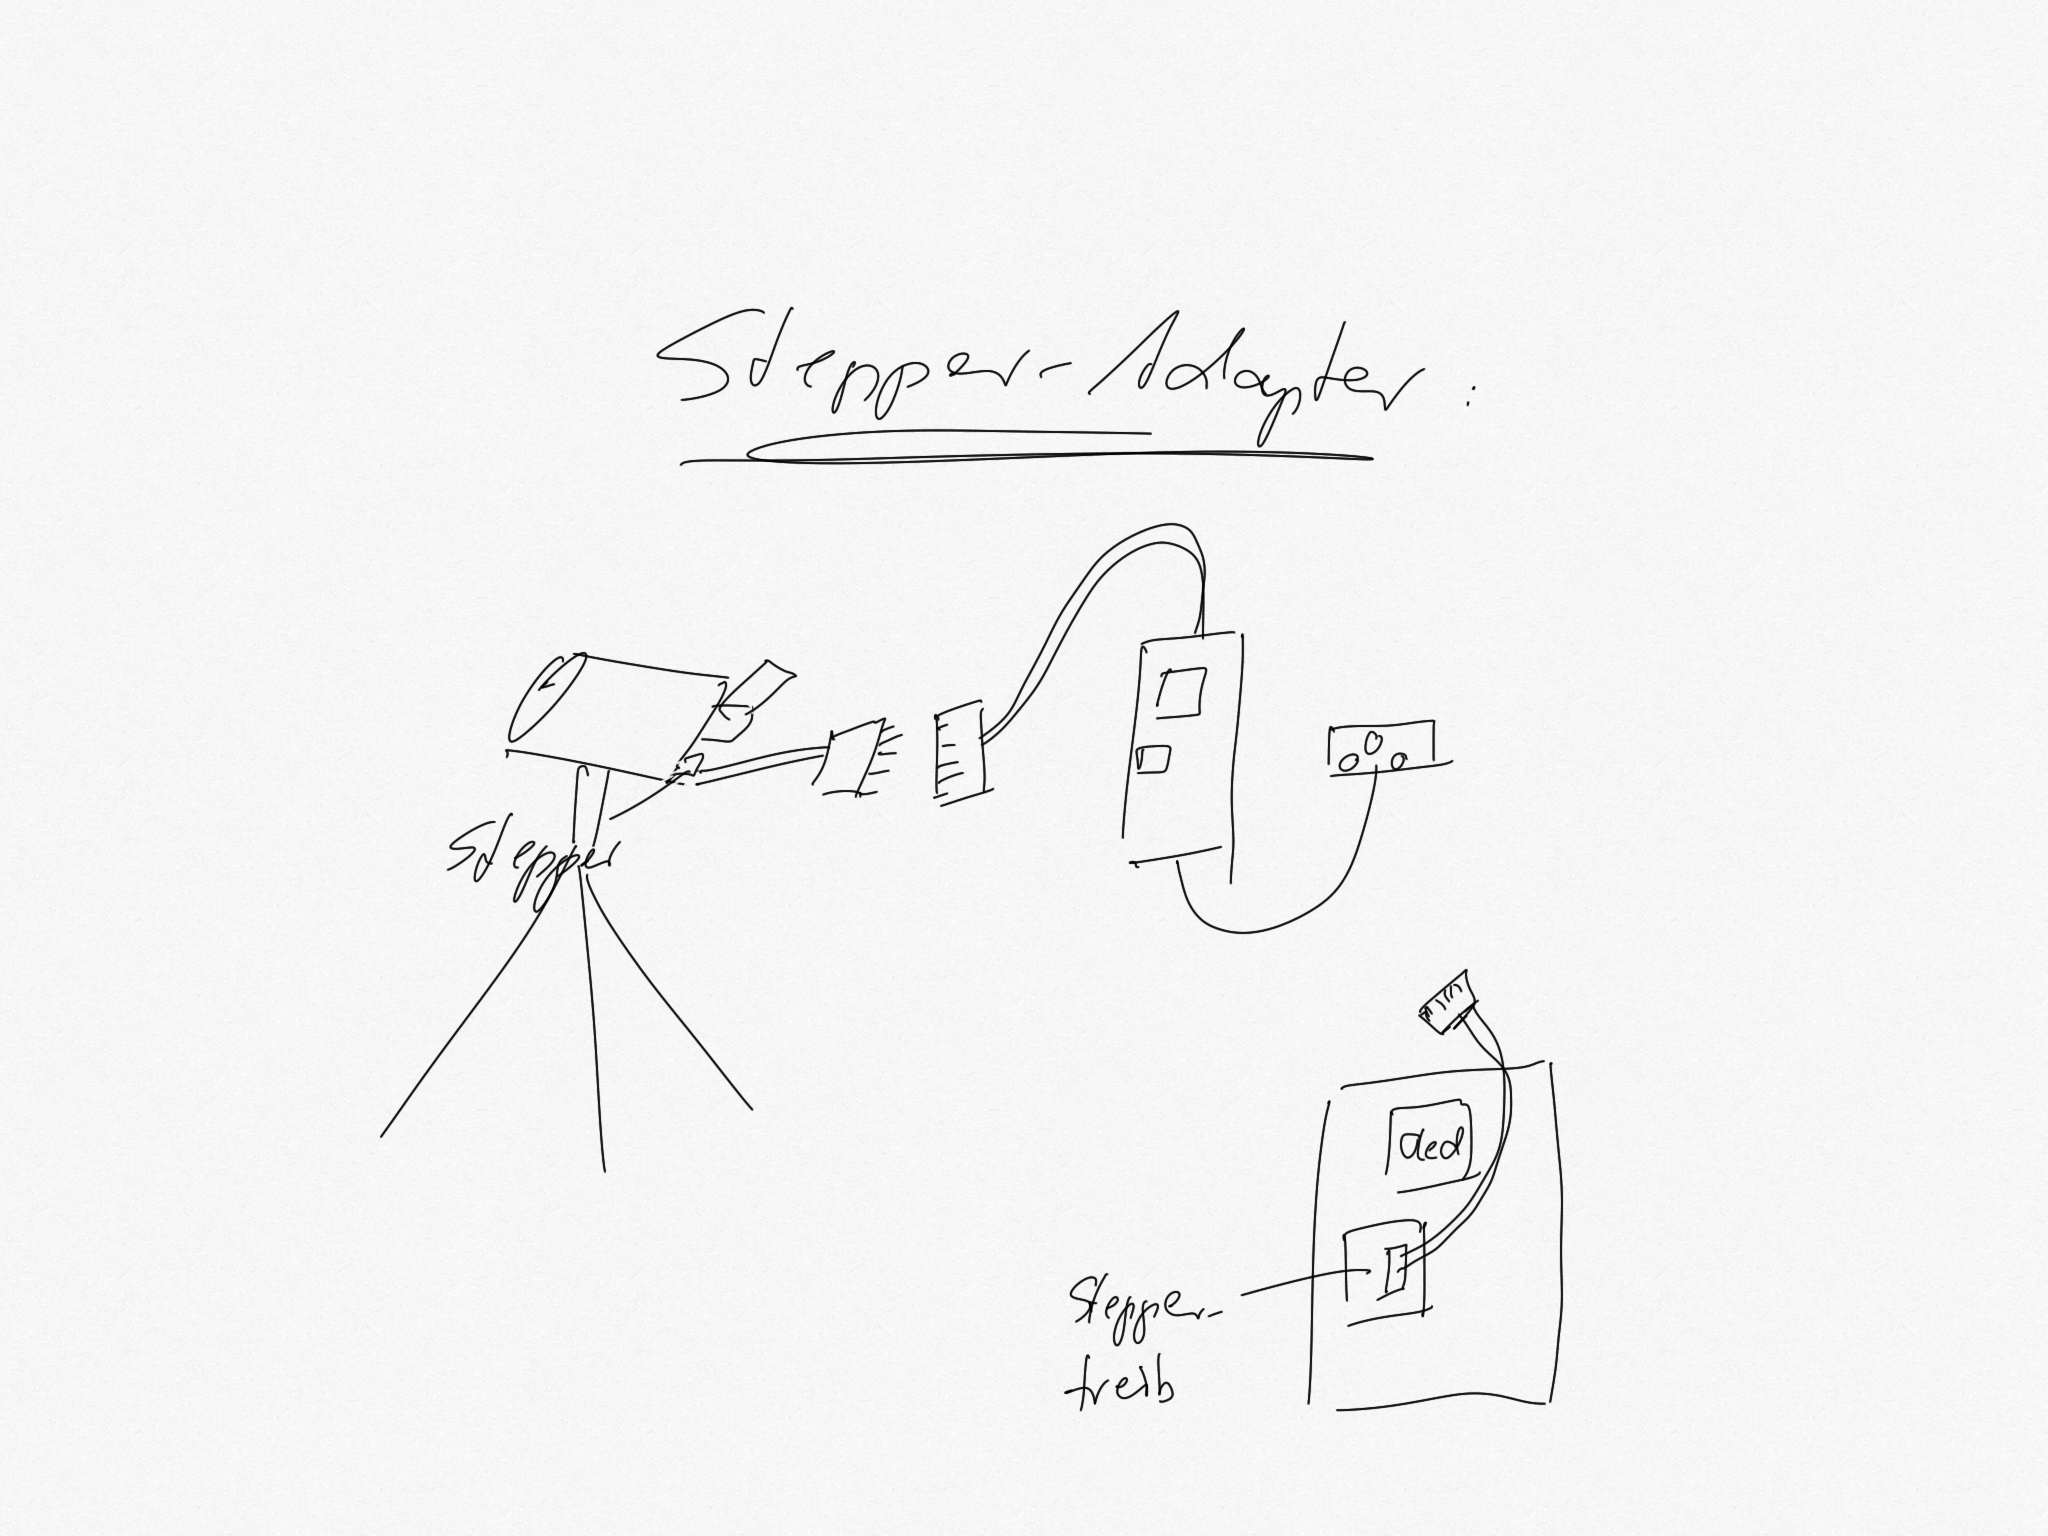 Stepper-Adapter:
Stepper
Stepper-
treib